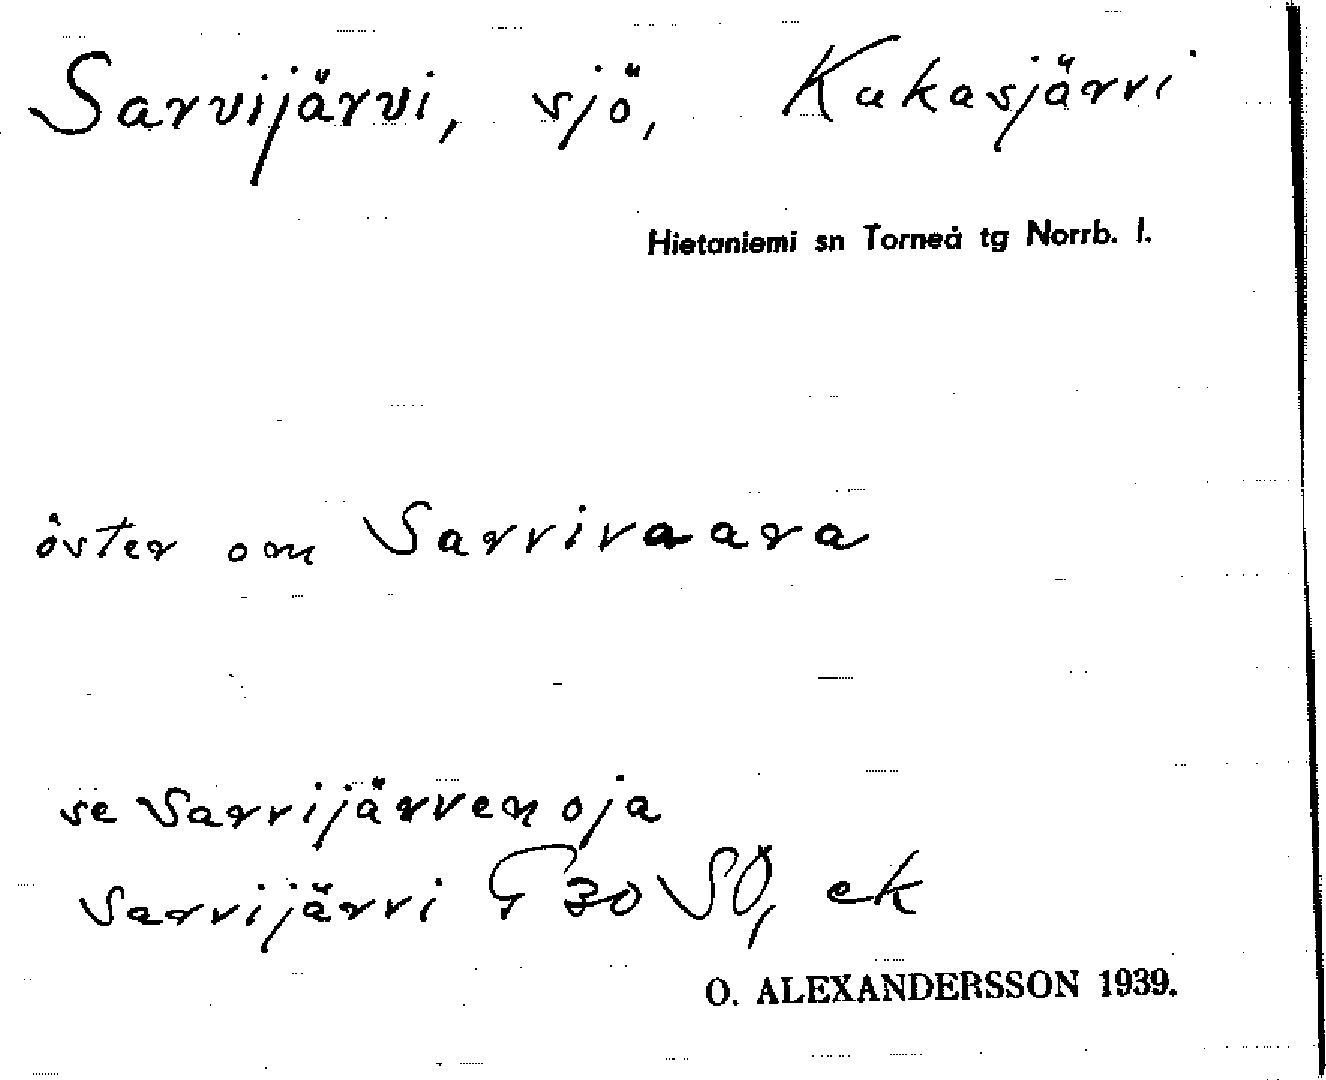 Sarvijärvi, sjö, Kukasjärvi
Hietaniemi sn Torneå tg Norrb. l.
öster om Sarvivaara
se Sarvijärvenoja
Sarvijärvi G 30 SÖ, ek
O. ALEXANDERSSON 1939.